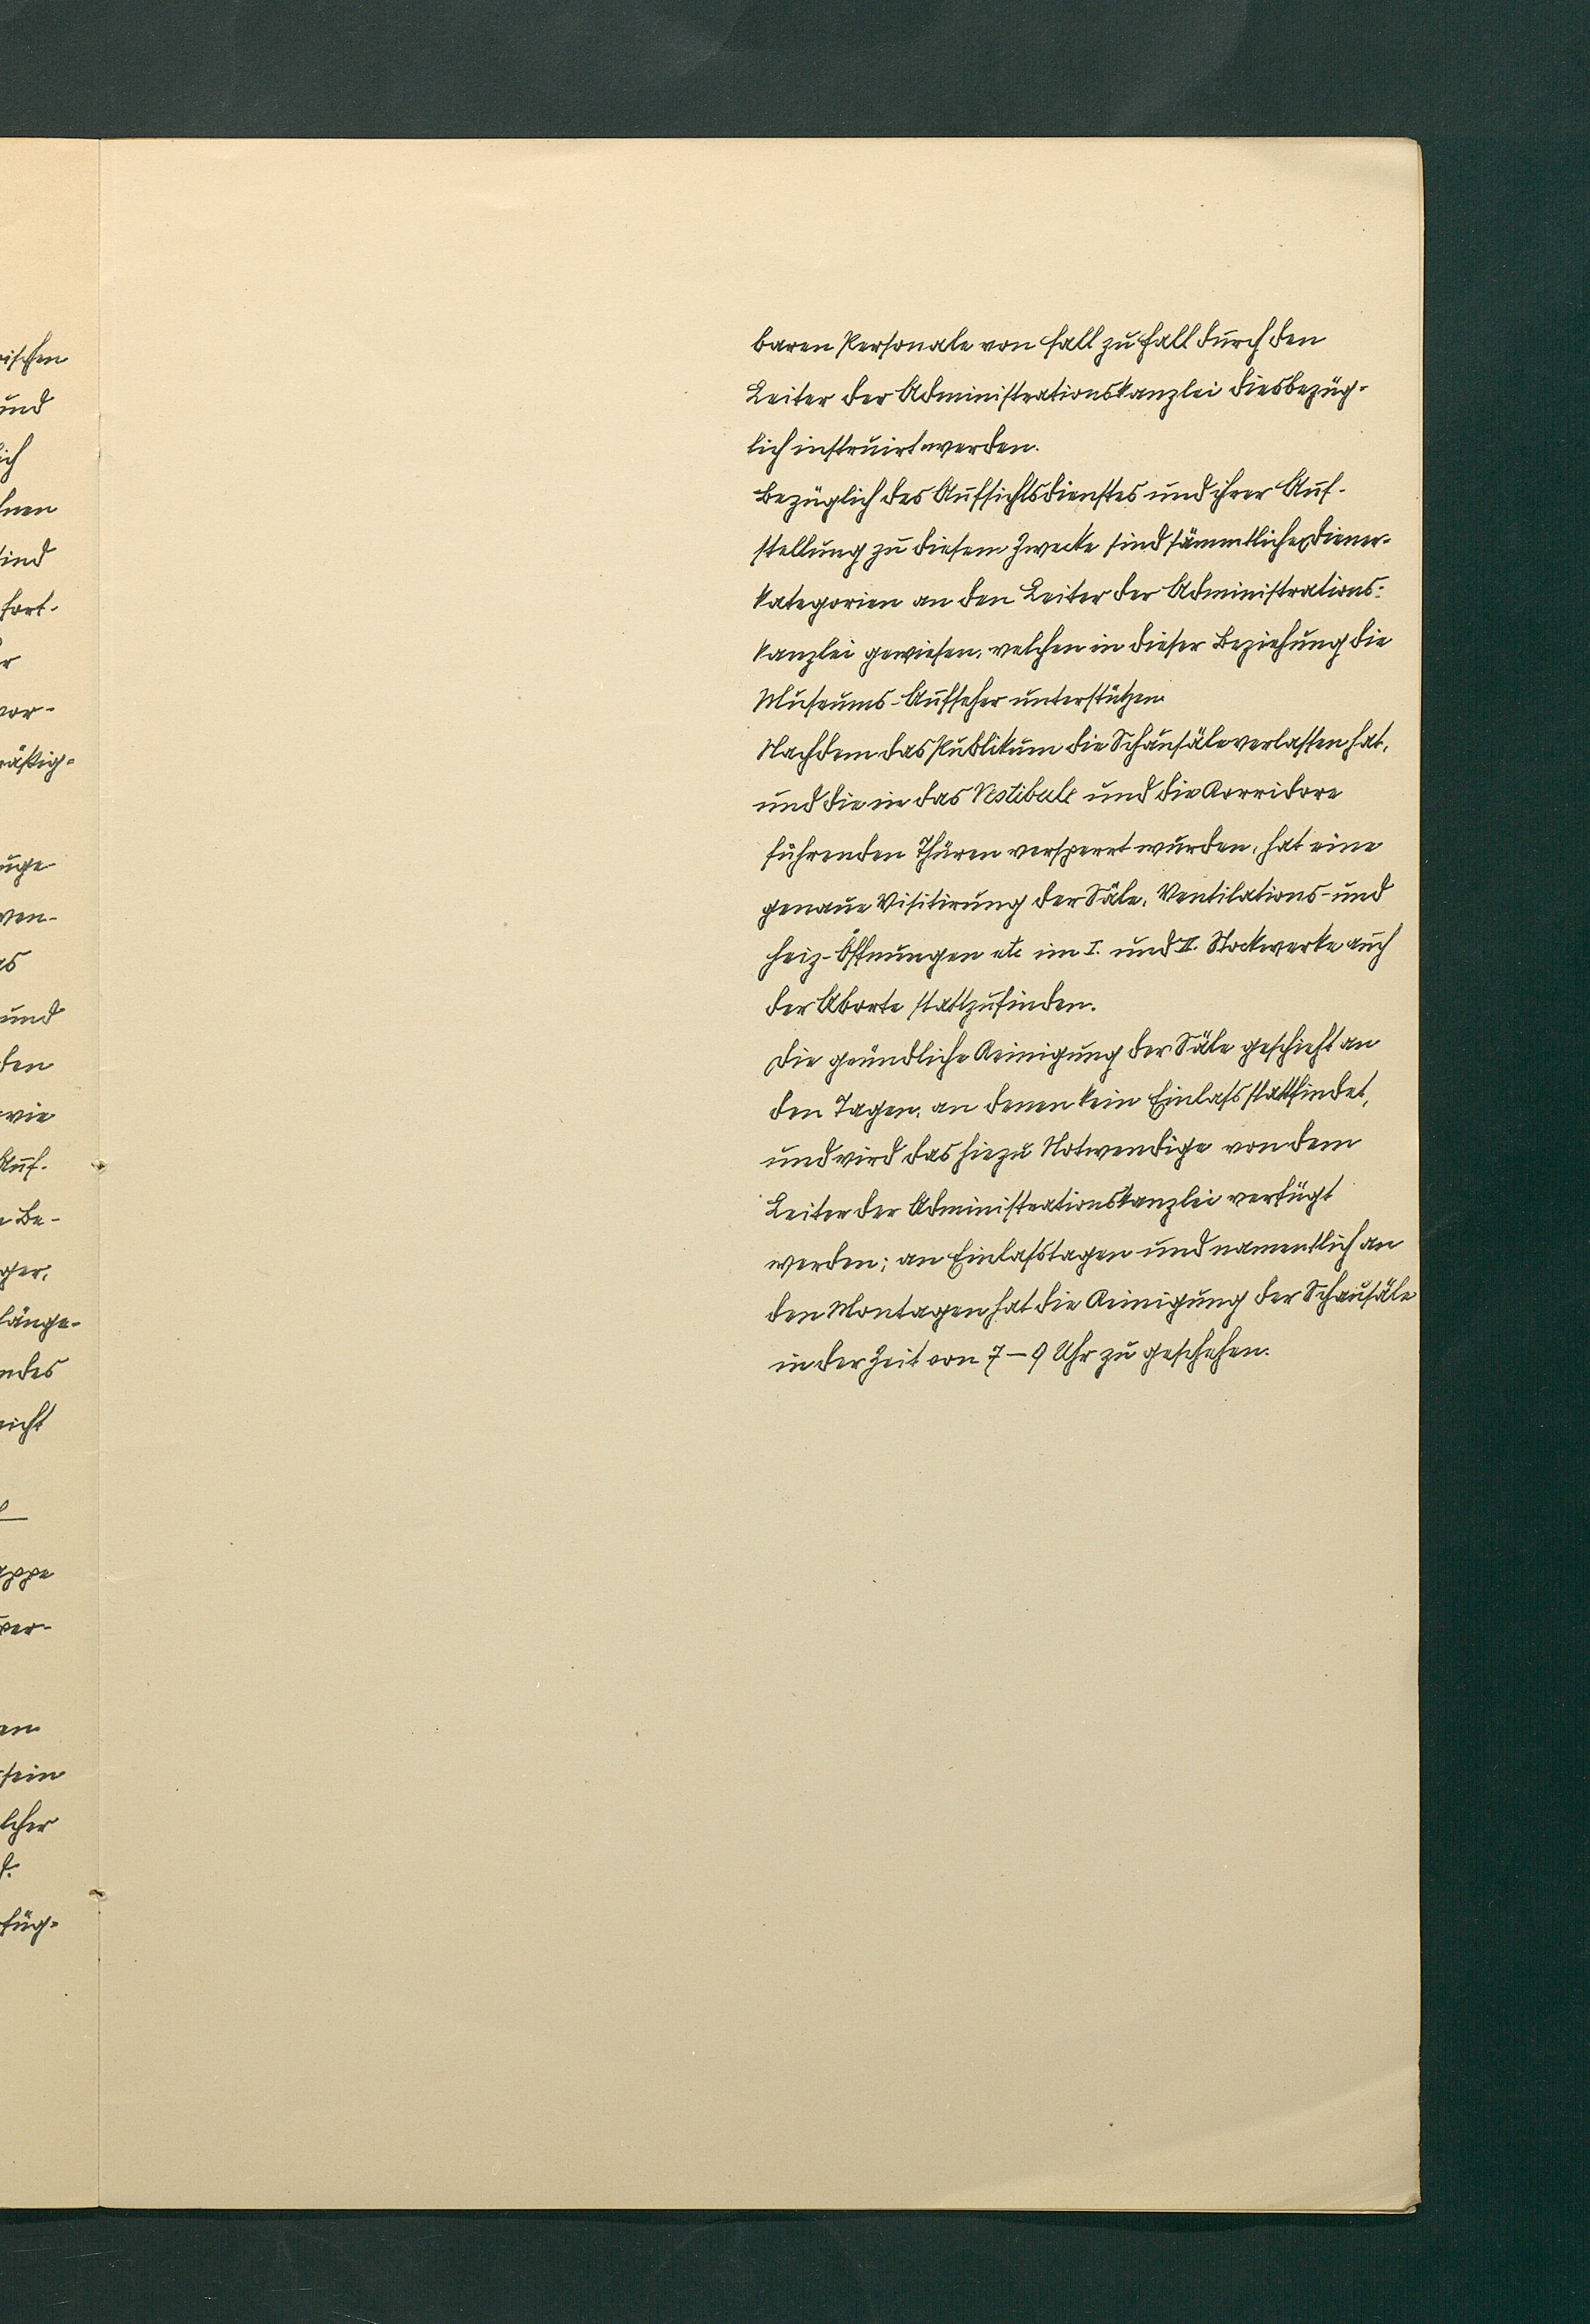 rischen
und
lich
hnen
sind
fort-
er
vor-
räßig-
uge
wen-
as
und
den
wie
Auf-
n Be-
ger,
länge-
ndes
nicht
appe
ver-
en
sein
lcher
füg-
baren Personale von Fall zu Fall durch den
Leiter der Administrationskanzlei diesbezüg-
lich instruirt werden.
Bezüglich des Aufsichtsdienstes und ihrer Auf-
stellung zu diesem Zwecke sind sämmtliche Diener-
kategorien an den Leiter der Administrations-
kanzlei gewiesen, welchen in dieser Beziehung die
Museums-Aufseher unterstützen.
Nachdem das Publikum die Schausäle verlassen hat,
und die in das Vestibule und die Korridore
führenden Thüren versperrt wurden, hat eine
genaue Visitirung der Säle, Ventilations- und
Heiz-Öffnungen etc im I. und II. Stockwerke auch
der Aborte stattzufinden.
Die gründliche Reinigung der Säle geschieht an
den Tagen, an denen kein Einlass stattfindet,
und wird das hiezu Notwendige von dem
Leiter der Administrationskanzlei verfügt
werden; an Einlasstagen und namentlich an
den Montagen hat die Reinigung der Schausäle
in der Zeit von 7–9 Uhr zu geschehen.